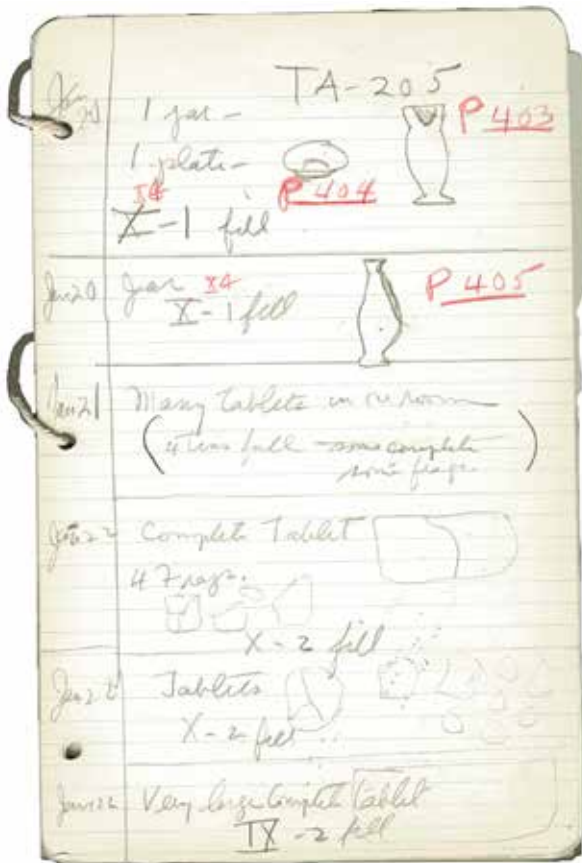 TA-205
Jan 20 1 jar -
P 403
1 plate - P 404
X4
X-1 fill
Jan 20 Jar X4 P 405
X-1 fill
Jan 21 Many tablets in one room
(4 tins full - some complete
some frags.)
Jan 22 Complete Tablet
4 Frags.
X-2 fill
Jan 22 Tablets
X-2 fill
Jan 22 Very large complete Tablet
IX-2 fill